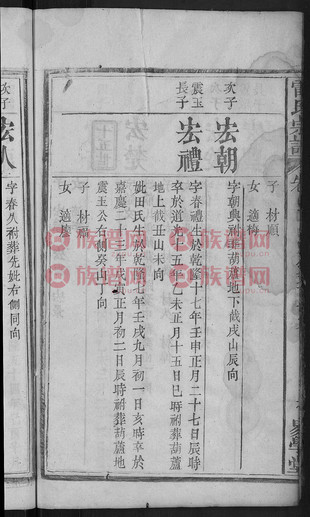 次子
宏朝
字朝興祔葬葫蘆地下截戌山辰向
子 材順
女 適
震玉
長子
宏禮
字春禮生於乾隆十七年壬申正月二十七日辰時
卒於道光十五年乙未正月十五日巳時祔葬葫蘆
地上截丑山未向
妣田氏生於乾隆七年壬戌九月初一日亥時卒於
嘉慶二十三年戊寅正月初二日辰時祔葬葫蘆地
震玉公右側癸山丁向
子 材
女 適
次子
宏八
字春八祔葬先妣右側同向
易學堂
族譜网